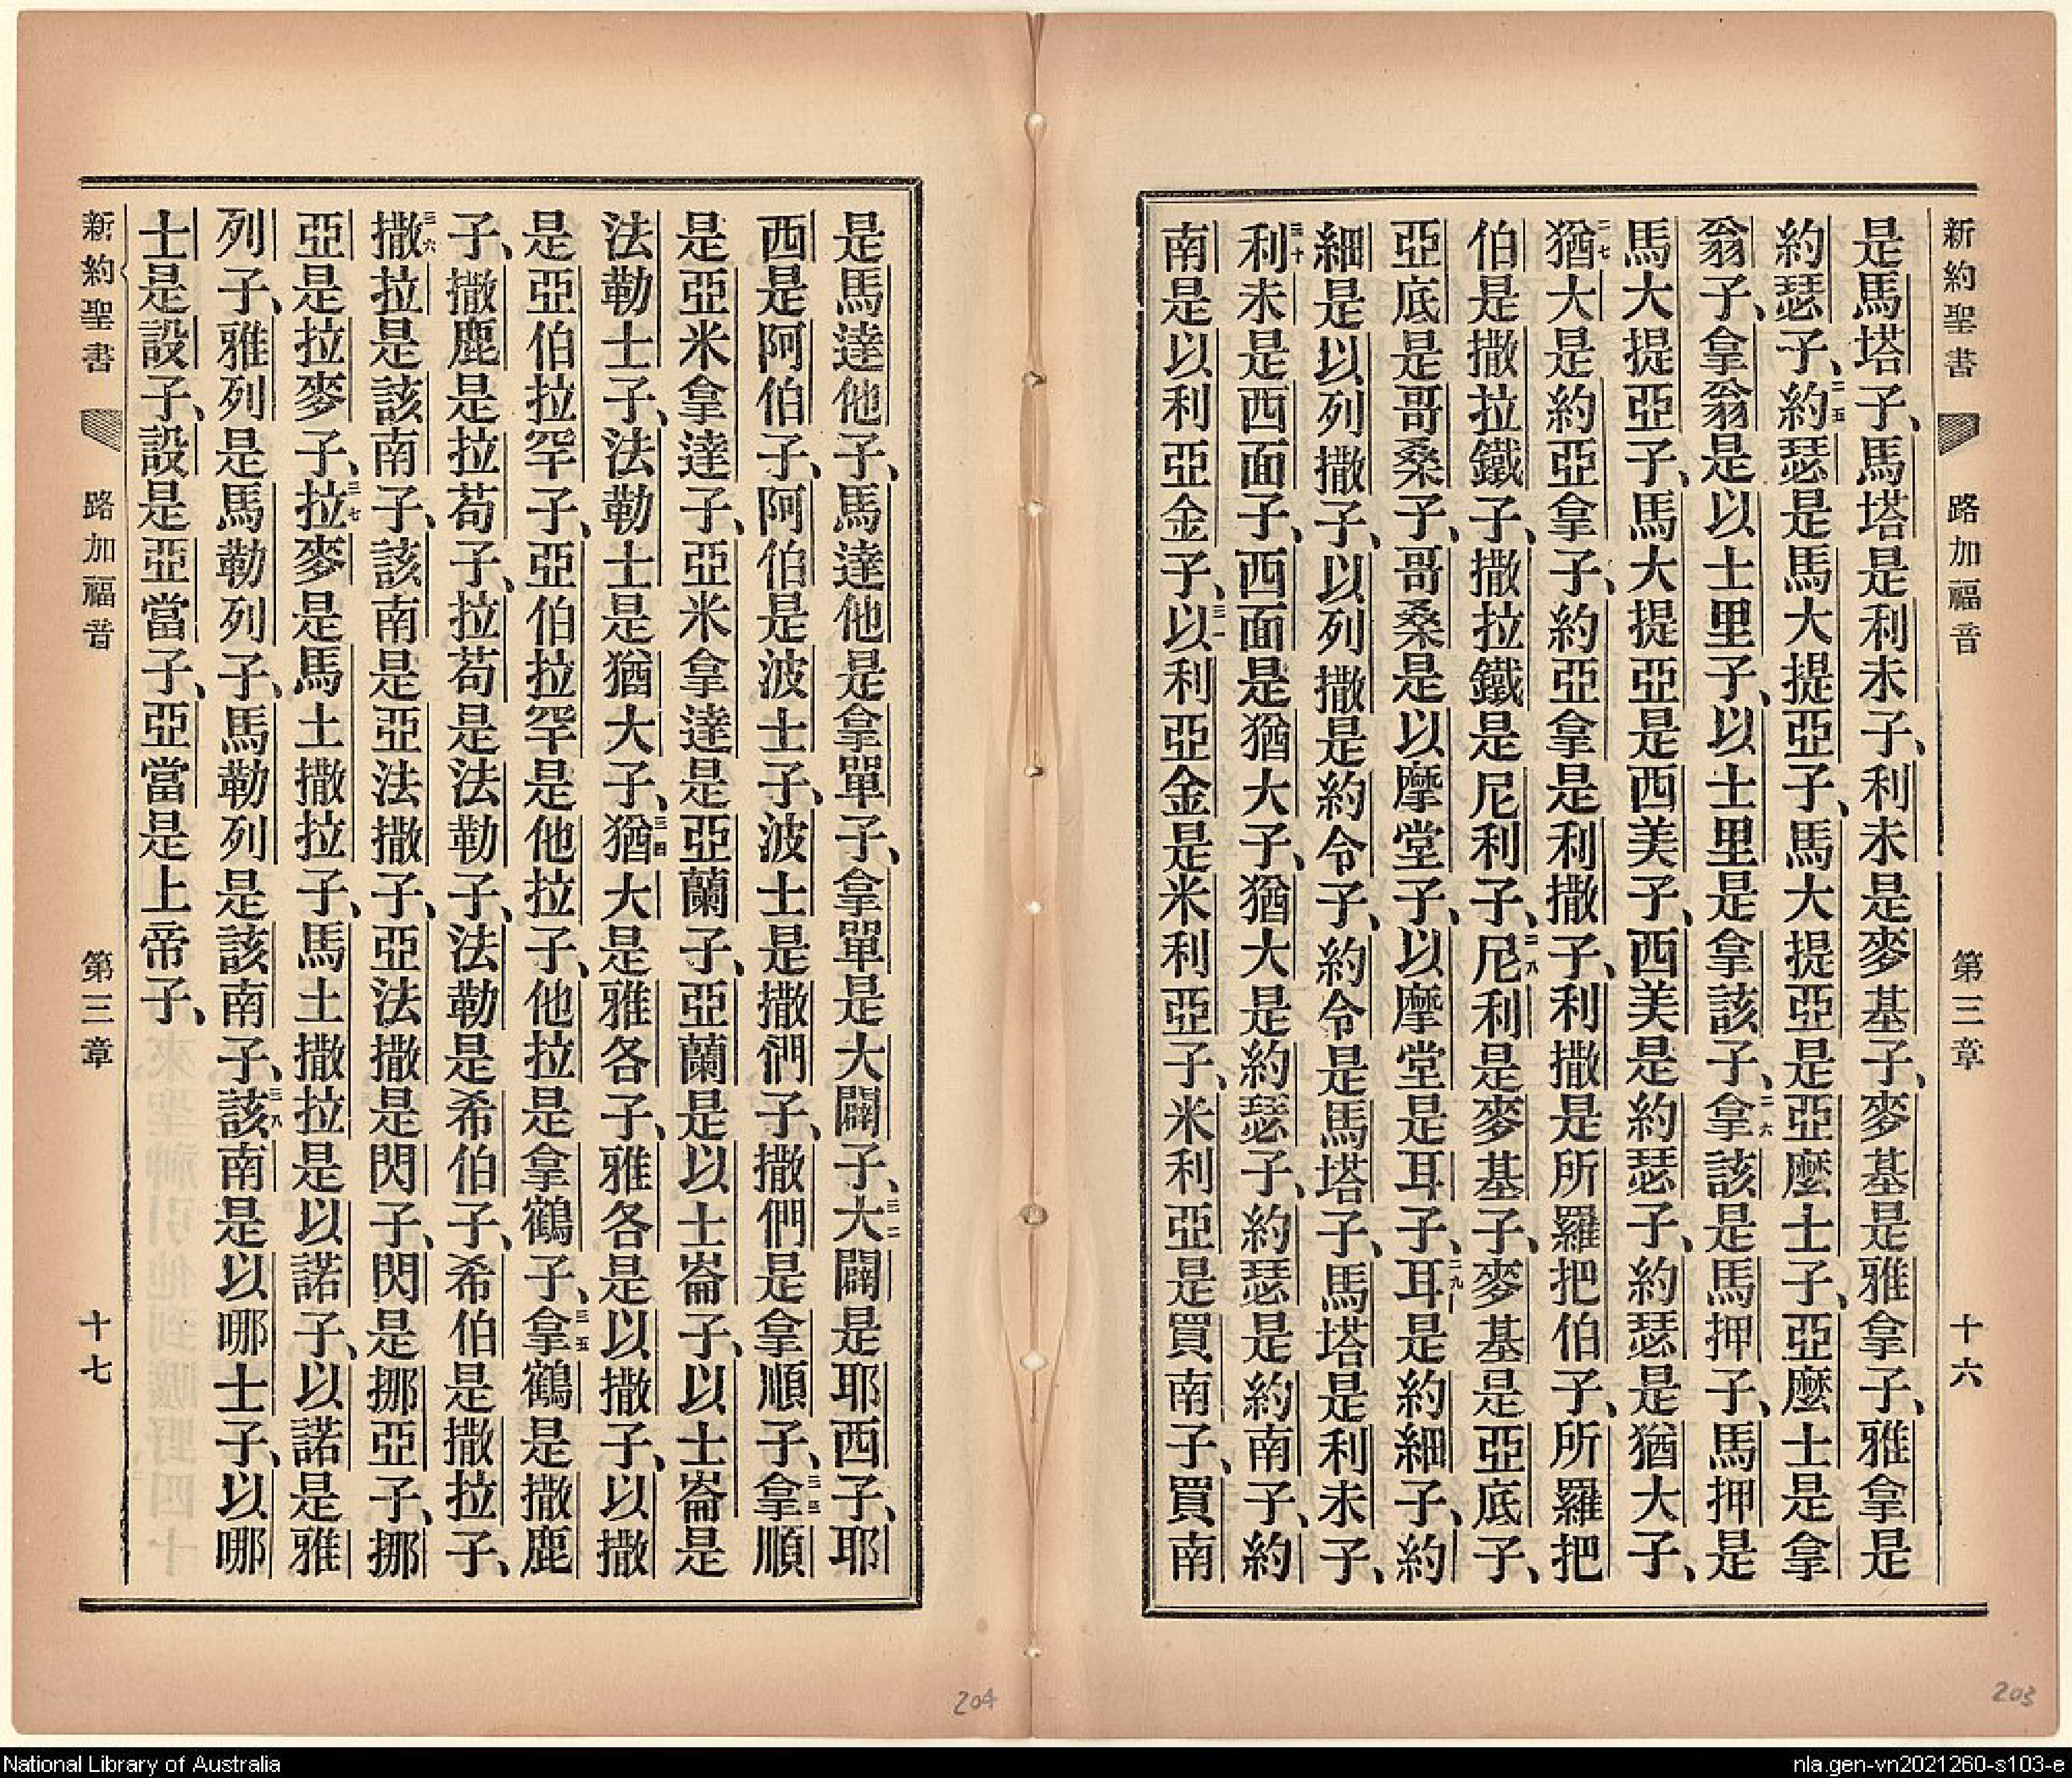 新約聖書 路加福音 第三章 十六
是馬塔子、馬塔是利未子、利未是麥基子、麥基是雅拿子、雅拿是
約瑟子、二五約瑟是馬大提亞子、馬大提亞是亞麼士子、亞麼士是拿
翁子、拿翁是以士里子、以士里是拿該子、二六拿該是馬押子、馬押是
馬大提亞子、馬大提亞是西美子、西美是約瑟子、約瑟是猶大子、
二七猶大是約亞拿子、約亞拿是利撒子、利撒是所羅把伯子、所羅把
伯是撒拉鐵子、撒拉鐵是尼利子、二八尼利是麥基子、麥基是亞底子、
亞底是哥桑子、哥桑是以摩堂子、以摩堂是耳子、二九耳是約細子、約
細是以列撒子、以列撒是約令子、約令是馬塔子、馬塔是利未子、
三十利未是西面子、西面是猶大子、猶大是約瑟子、約瑟是約南子、約
南是以利亞金子、三一以利亞金是米利亞子、米利亞是買南子、買南
是馬達他子、馬達他是拿單子、拿單是大闢子、三二大闢是耶西子、耶
西是阿伯子、阿伯是波士子、波士是撒們子、撒們是拿順子、三三拿順
是亞米拿達子、亞米拿達是亞蘭子、亞蘭是以士崙子、以士崙是
法勒士子、法勒士是猶大子、三四猶大是雅各子、雅各是以撒子、以撒
是亞伯拉罕子、亞伯拉罕是他拉子、他拉是拿鶴子、三五拿鶴是撒鹿
子、撒鹿是拉苟子、拉苟是法勒子、法勒是希伯子、希伯是撒拉子、
三六撒拉是該南子、該南是亞法撒子、亞法撒是閃子、閃是挪亞子、挪
亞是拉麥子、三七拉麥是馬土撒拉子、馬土撒拉是以諾子、以諾是雅
列子、雅列是馬勒列子、馬勒列是該南子、三八該南是以哪士子、以哪
士是設子、設是亞當子、亞當是上帝子、
新約聖書 路加福音 第三章 十七
204
203
National Library of Australia
nla.gen-vn2021260-s103-e